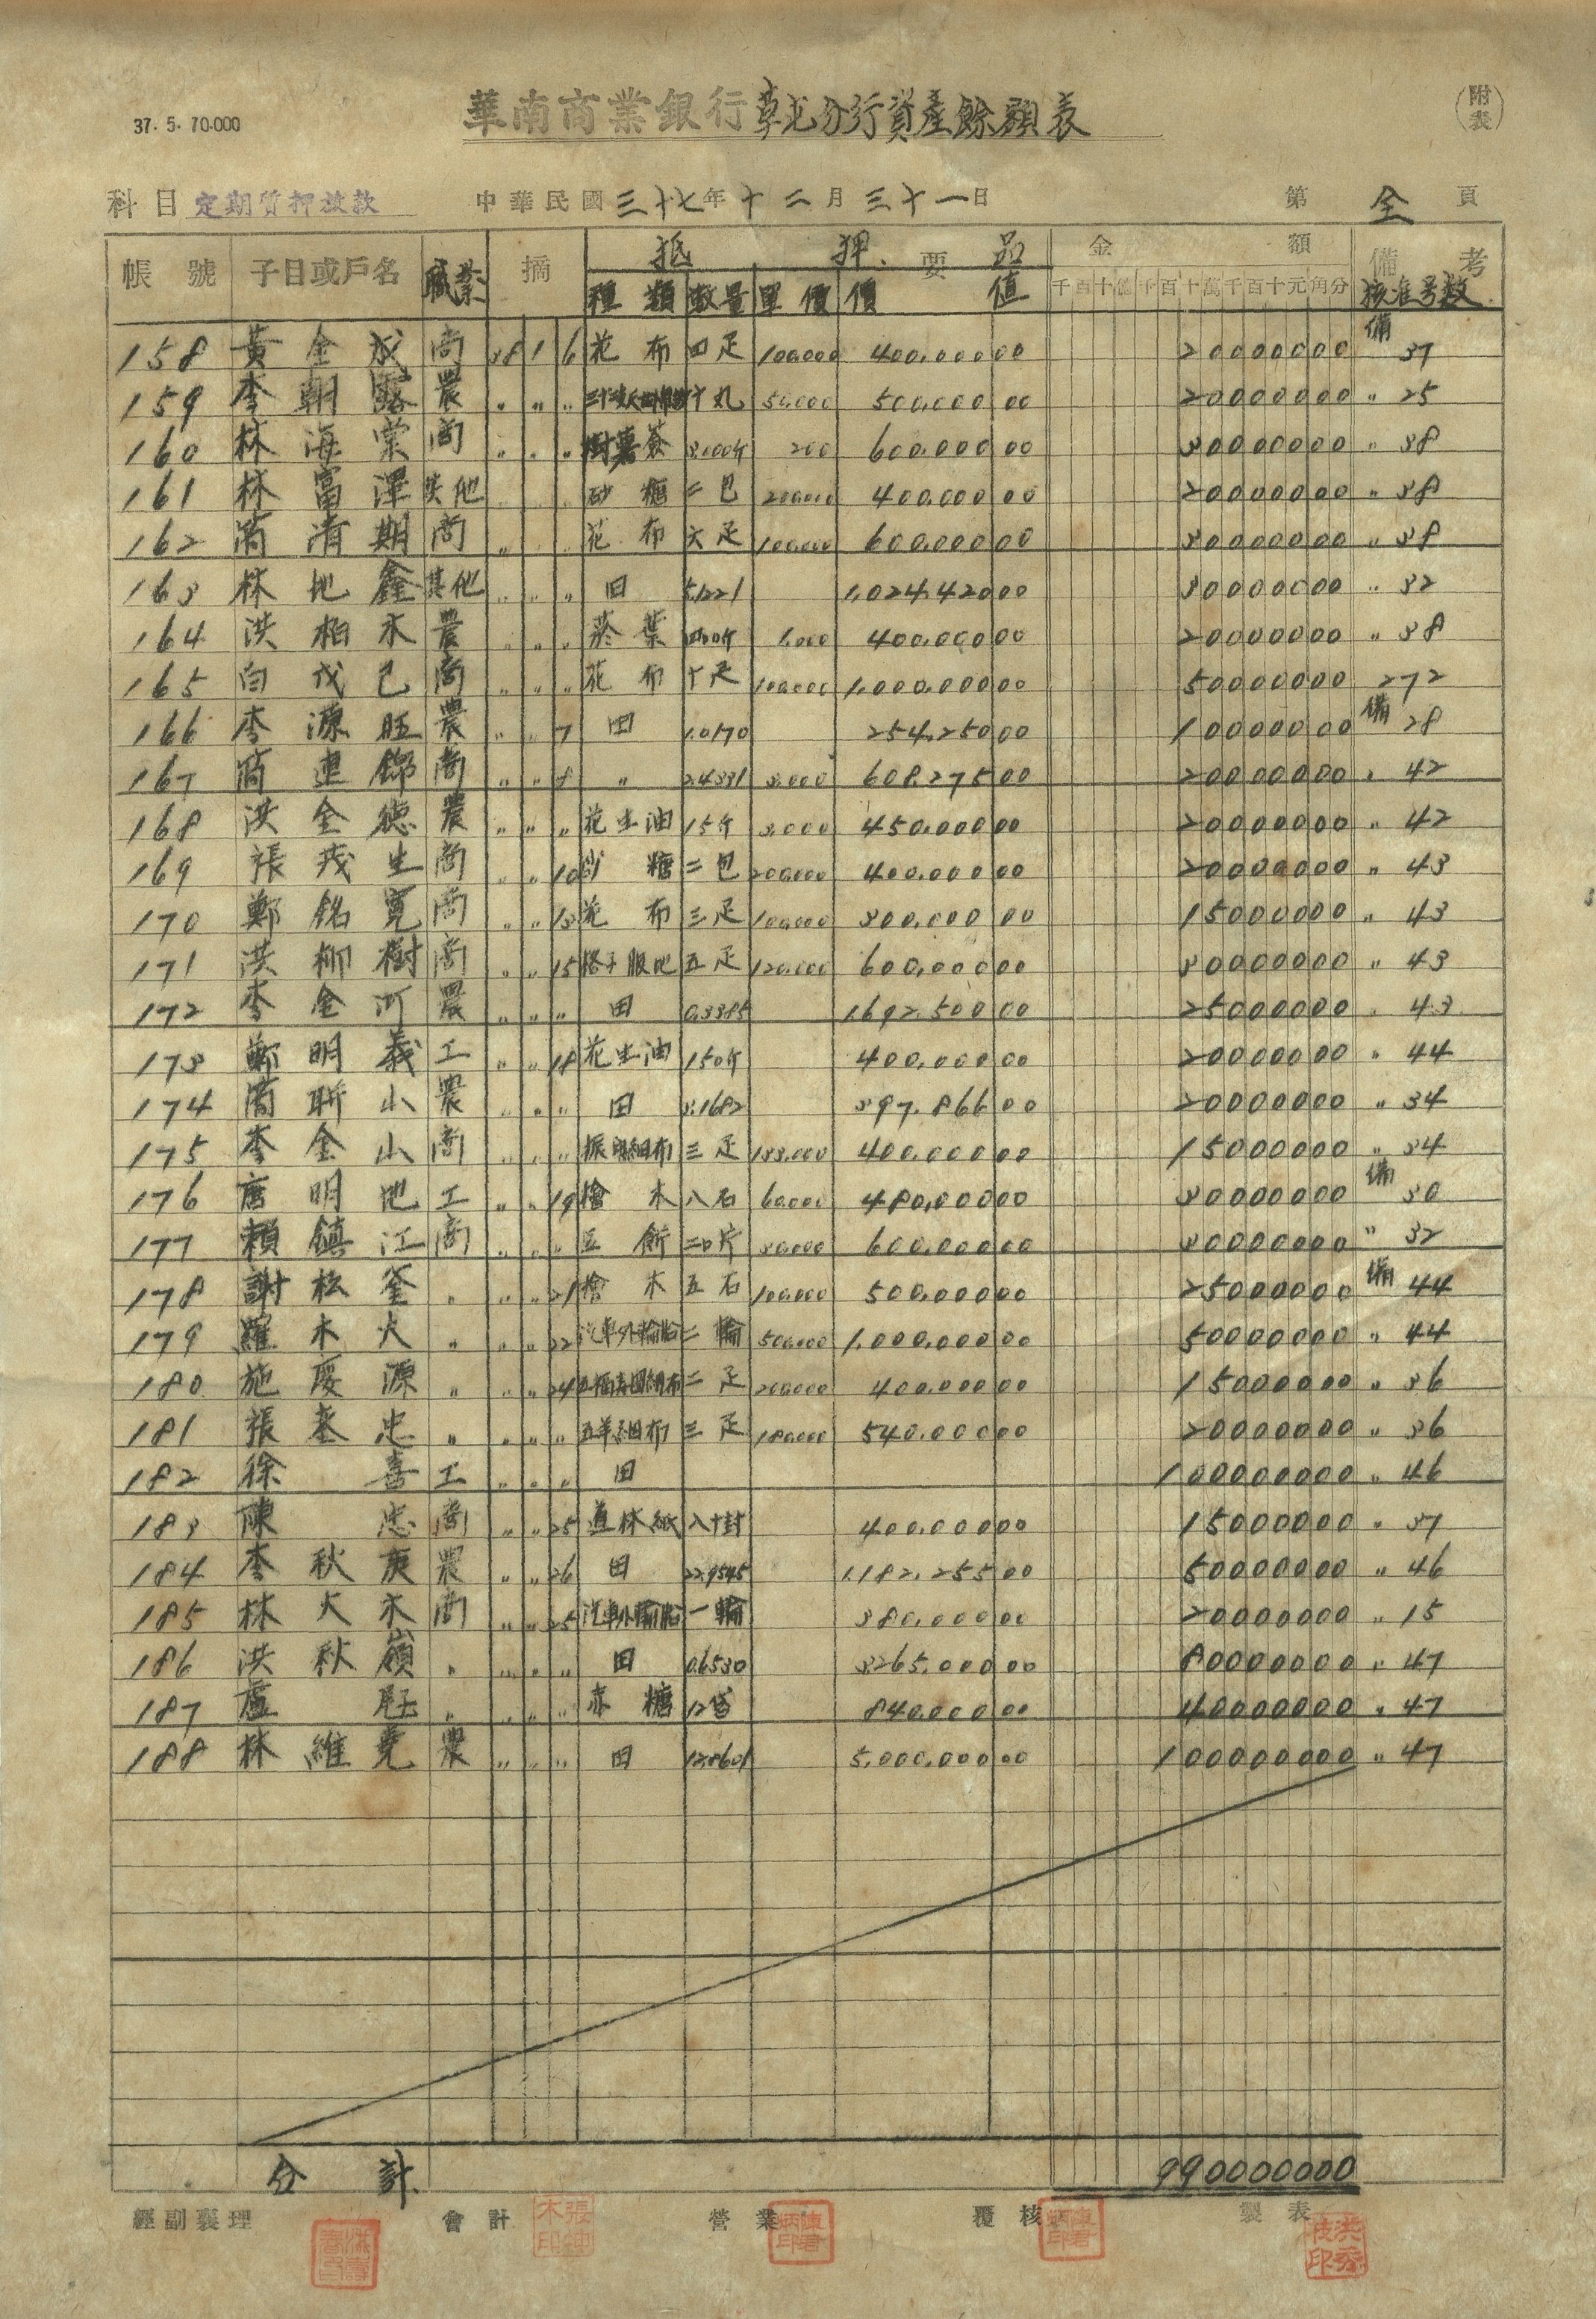 37. 5. 70.000
華南商業銀行草屯分行資產餘額表
(附表)
科目 定期質押放款 中華民國三十七年十二月三十一日 第 全 頁
帳號 子目或戶名 職業 摘 要 抵押品 金額 備考
種類 數量 單價 價值 千百十億千百十萬千百十元角分 核准号数
158 黃金成 商 38 1 6 花布 四疋 100.000 400.000 00 200000 00 備 37
159 李朝露 農 〃 〃 〃 十丸 50.000 500.000 00 200000 00 〃 25
160 林海棠 商 〃 〃 〃 樹薯簽 3.000斤 200 600.000 00 300000 00 〃 38
161 林富澤 其他 〃 〃 〃 砂糖 二包 200.000 400.000 00 200000 00 〃 38
162 簡清期 商 〃 〃 〃 花布 六疋 100.000 600.000 00 300000 00 〃 38
163 林地鑫 其他 〃 〃 〃 田 1.024.420 00 300000 00 〃 32
164 洪柏永 農 〃 〃 〃 菸葉 1.000 400.000 00 200000 00 〃 38
165 白戊己 商 〃 〃 〃 花布 十疋 100.000 1.000.000 00 500000 00 272
166 李源旺 農 〃 〃 7 田 1.0170 254.250 00 100000 00 備 28
167 簡連錦 商 〃 〃 8 〃 2.4331 3.000 608.275 00 200000 00 〃 42
168 洪全德 農 〃 〃 〃 花生油 15斤 3.000 450.000 00 200000 00 〃 42
169 張茂生 商 〃 〃 10 砂糖 二包 200.000 400.000 00 200000 00 〃 43
170 鄭銘寬 商 〃 〃 13 花布 三疋 100.000 300.000 00 150000 00 〃 43
171 洪柳樹 商 〃 〃 15 服地 五疋 120.000 600.000 00 300000 00 〃 43
172 李金河 農 〃 〃 〃 田 0.3385 1.692.500 00 250000 00 〃 43
173 鄭明義 工 〃 〃 18 花生油 150斤 400.000 00 200000 00 〃 44
174 簡聯山 農 〃 〃 〃 田 3.1682 397.866 00 200000 00 〃 34
175 李金山 商 〃 〃 〃 細布 三疋 133.000 400.000 00 150000 00 〃 34
176 唐明地 工 〃 〃 19 檜木 八石 60.000 480.000 00 300000 00 備 30
177 賴鎮江 商 〃 〃 〃 豆餅 二〇片 30.000 600.000 00 300000 00 〃 32
178 謝松釜 〃 〃 〃 21 檜木 五石 100.000 500.000 00 250000 00 備 44
179 羅木火 〃 〃 〃 22 汽車外輪胎 二輪 500.000 1.000.000 00 500000 00 〃 44
180 施慶源 〃 〃 〃 24 五福細布 二疋 200.000 400.000 00 150000 00 〃 36
181 張奎忠 〃 〃 〃 〃 五羊細布 三疋 180.000 540.000 00 200000 00 〃 36
182 徐喜 工 〃 〃 〃 田 1000000 00 〃 46
183 陳忠 商 〃 〃 25 道林紙 八十封 400.000 00 150000 00 〃 37
184 李秋庚 農 〃 〃 26 田 22.9545 1.182.255 00 500000 00 〃 46
185 林大木 商 〃 〃 25 汽車外輪胎 一輪 380.000 00 200000 00 〃 15
186 洪秋嶺 〃 〃 〃 〃 田 0.6530 3265.000 00 800000 00 〃 47
187 盧 〃 〃 〃 〃 赤糖 12袋 840.000 00 400000 00 〃 47
188 林維堯 農 〃 〃 〃 田 12.8601 5.000.000 00 1000000 00 〃 47
合計 9900000 00
經副襄理 會計 營業 覆核 製表